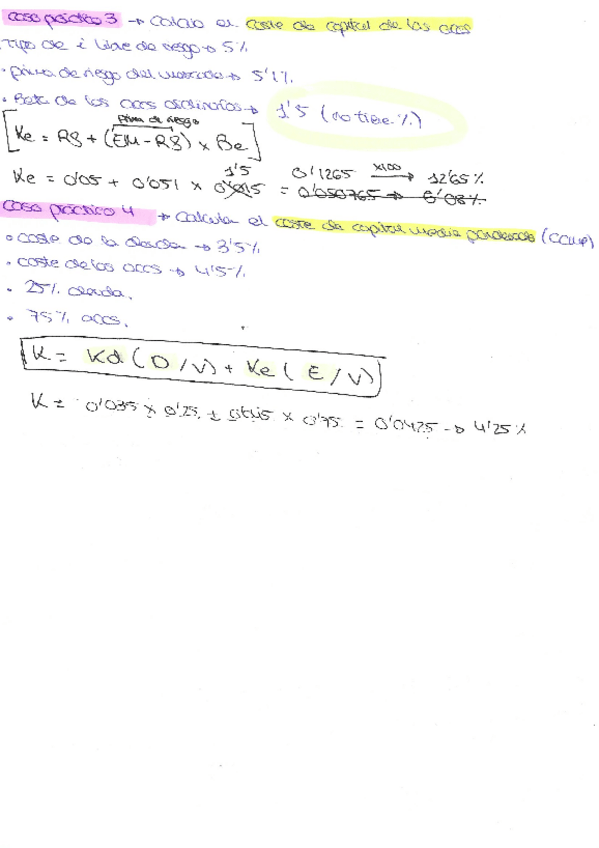 caso práctico 3 → Calculo el coste de capital de las accs
Tipo de i libre de riesgo → 5%
· prima de riesgo del mercado → 5'1%
· Beta de las accs ordinarias → 1'5 (no tiene %)
prima de riesgo
[Ke = Rf + (EM - Rf) x Be]
1'5
Ke = 0'05 + 0'051 x 0'015 = 0'050765 → 0'08% 0'1265 x100→ 12'65%
caso práctico 4 → Calcular el coste de capital medio ponderado (CCMP)
· coste de la deuda → 3'5%
· coste de las accs → 4'5%
· 25% deuda.
· 75% accs.
K = Kd (D/V) + Ke (E/V)
K = 0'035 x 0'25 + 0'045 x 0'75 = 0'0425 → 4'25%